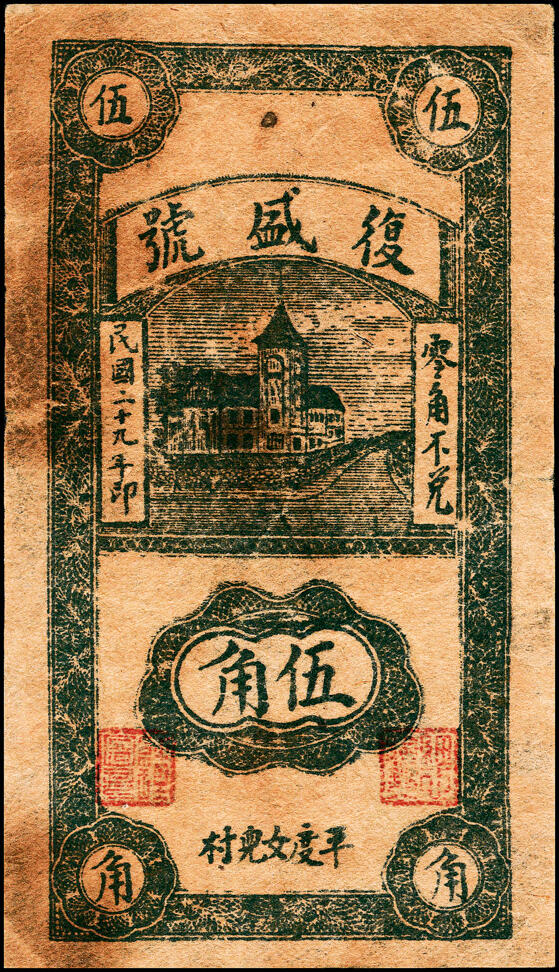 伍 伍
復盛號
零角不兌
民國二十九年印
伍角
平度女兒村
角 角